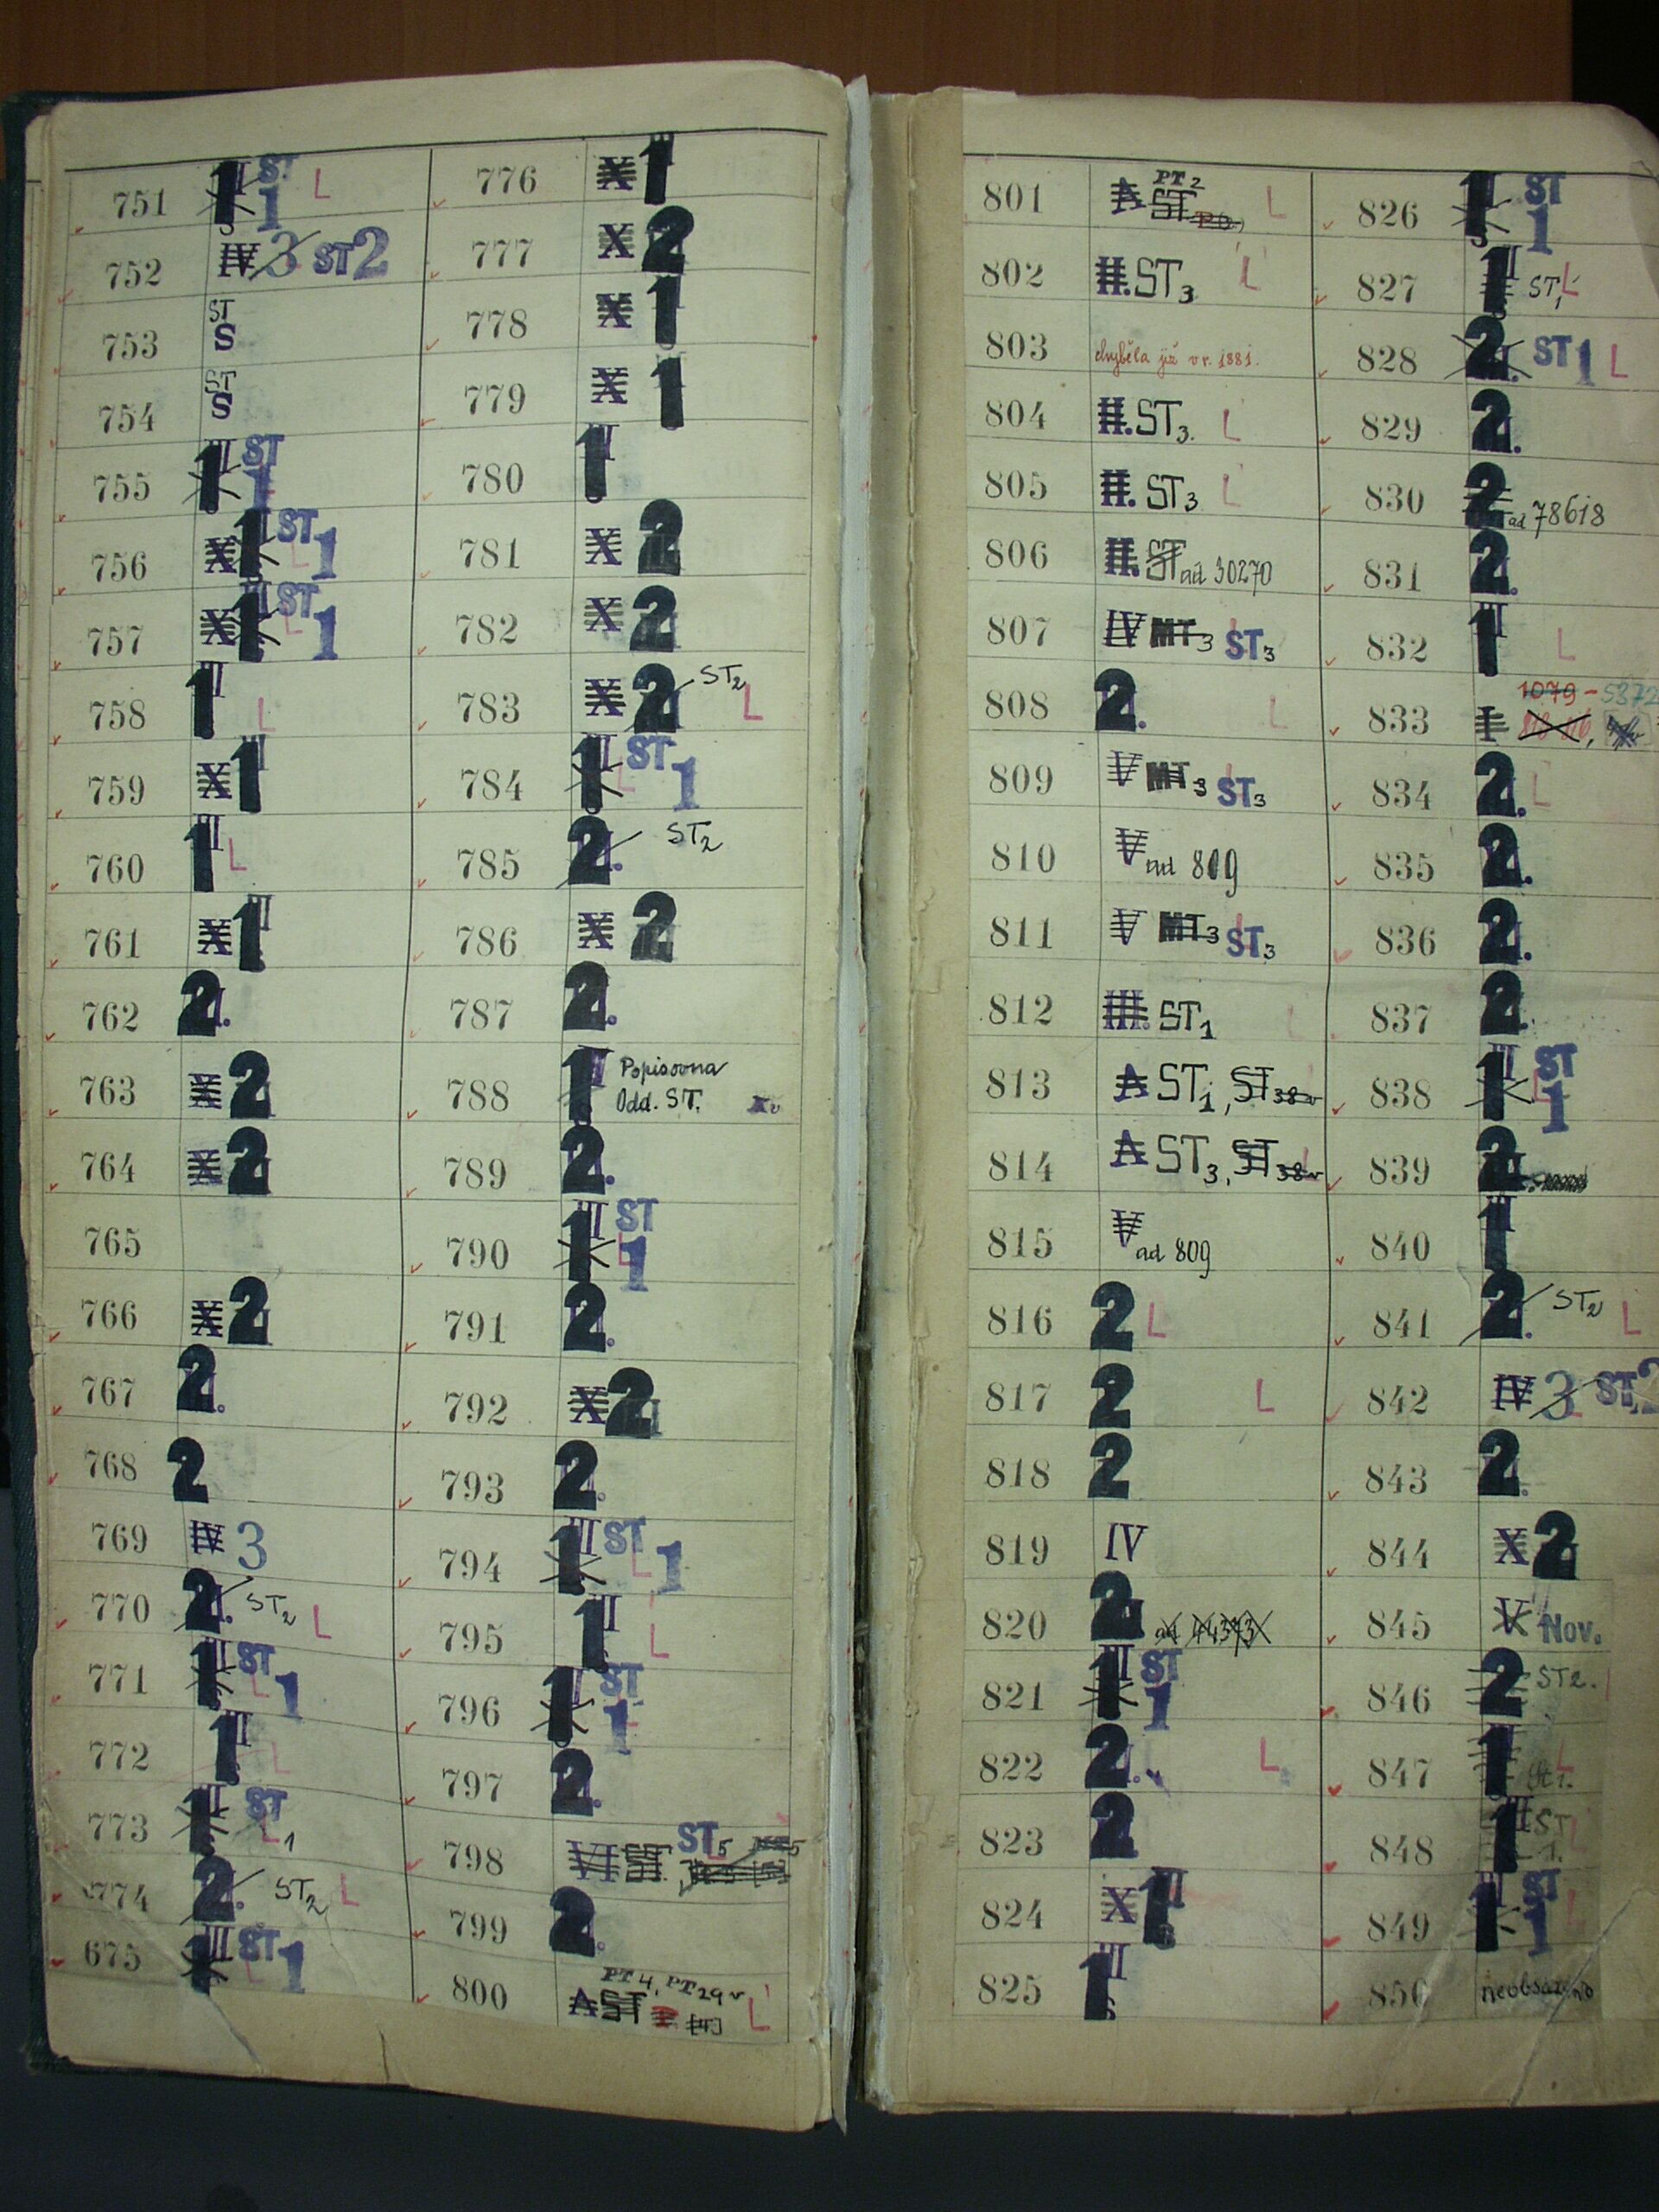 751 1 ST 1 L
752 IV 3 ST 2
753 ST S
754 ST S
755 1 ST 1
756 X 1 ST 1 L
757 X 1 ST 1 L
758 1 L
759 X 1
760 1 L
761 X 1
762 2.
763 X 2
764 X 2
765
766 X 2
767 2.
768 2
769 IV 3
770 2. ST2 L
771 1 ST 1 L
772 1 L
773 1 ST L 1
774 2. ST2 L
675 1 ST 1 L
776 X 1
777 X 2
778 X 1
779 X 1
780 1
781 X 2
782 X 2
783 X 2 ST2 L
784 1 ST 1 L
785 2. ST2
786 X 2
787 2.
788 1 Popisovna
Odd. ST.
789 2.
790 1 ST 1 L
791 2.
792 X 2
793 2.
794 1 III ST 1 L
795 1 L
796 1 ST 1 L
797 2.
798 VI ST ST5
799 2.
800 PT4, PT29v
A ST L
801 PT2
A ST L
802 II. ST3 L
803 chyběla již v r. 1881.
804 II. ST3. L
805 II. ST3 L
806 II. ST ad 30270
807 IV MT3 ST3
808 2. L
809 V MT3 ST3
810 V ad 809
811 V MT3 ST3
812 III. ST1 L
813 A ST1, ST38v
814 A ST3, ST38v
815 V ad 809
816 2 L
817 2 L
818 2
819 IV
820 2 ad 44373
821 1 III ST 1
822 2. L
823 2
824 X 1
825 1
826 1 ST 1
827 1 ST1 L
828 2 ST 1 L
829 2.
830 2 ad 78618
831 2.
832 1 L
833 I 1079 - 5372
834 2. L
835 2.
836 2.
837 2.
838 1 ST 1 L
839 2
840 1
841 2. ST2 L
842 IV 3 ST 2
843 2.
844 X 2
845 V Nov.
846 2 ST2.
847 1 L
848 1 ST 1.
849 1 ST 1 L
850 neobsazeno